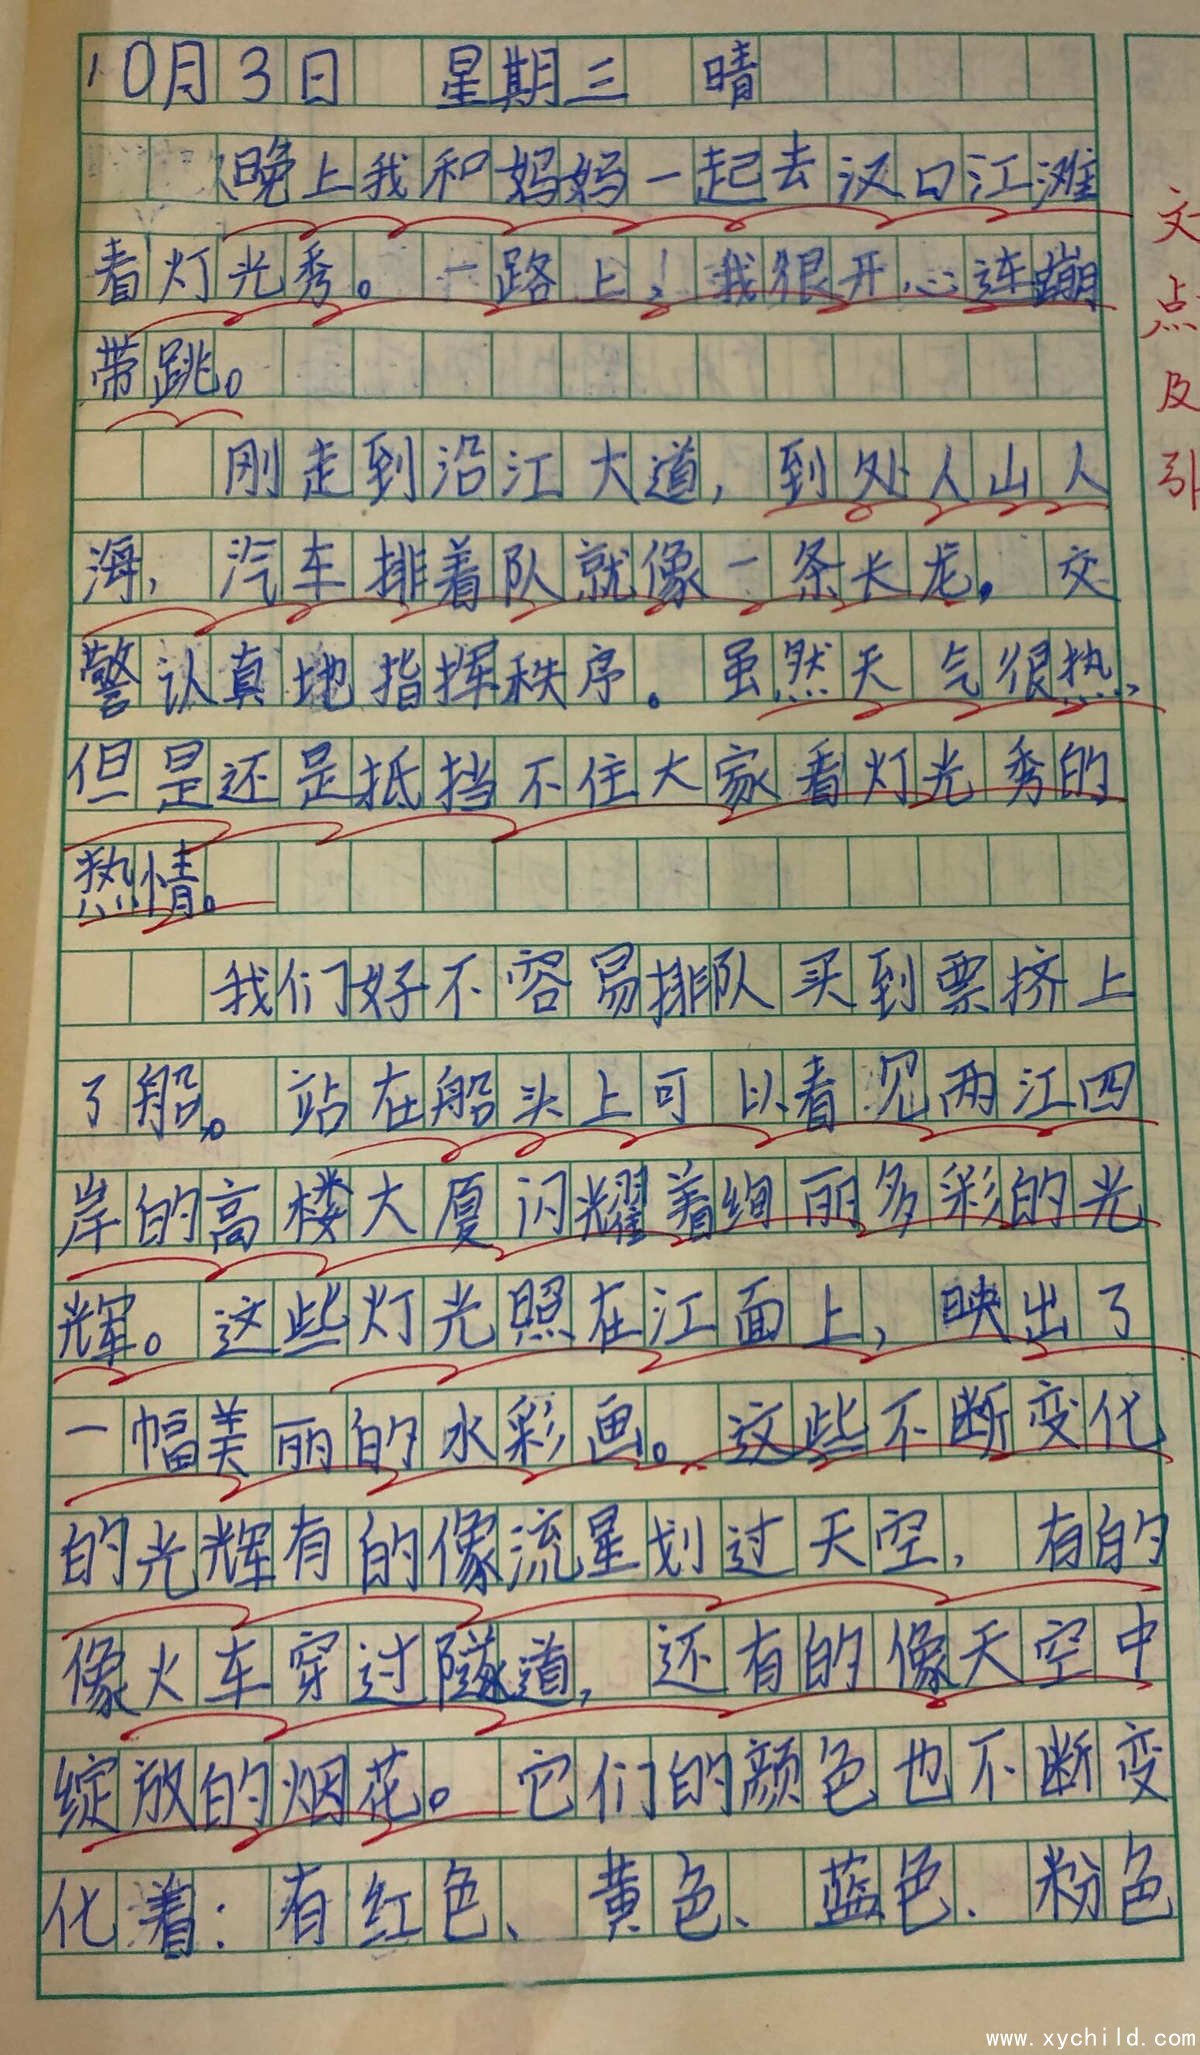 10月3日 星期三 晴
晚上我和妈妈一起去汉口江滩
看灯光秀。一路上，我很开心连蹦
带跳。
刚走到沿江大道，到处人山人
海，汽车排着队就像一条长龙。交
警认真地指挥秩序。虽然天气很热，
但是还是抵挡不住大家看灯光秀的
热情。
我们好不容易排队买到票挤上
了船。站在船头上可以看见两江四
岸的高楼大厦闪耀着绚丽多彩的光
辉。这些灯光照在江面上，映出了
一幅美丽的水彩画。这些不断变化
的光辉有的像流星划过天空，有的
像火车穿过隧道，还有的像天空中
绽放的烟花。它们的颜色也不断变
化着：有红色、黄色、蓝色、粉色
文
点
及
引
www.xychild.com